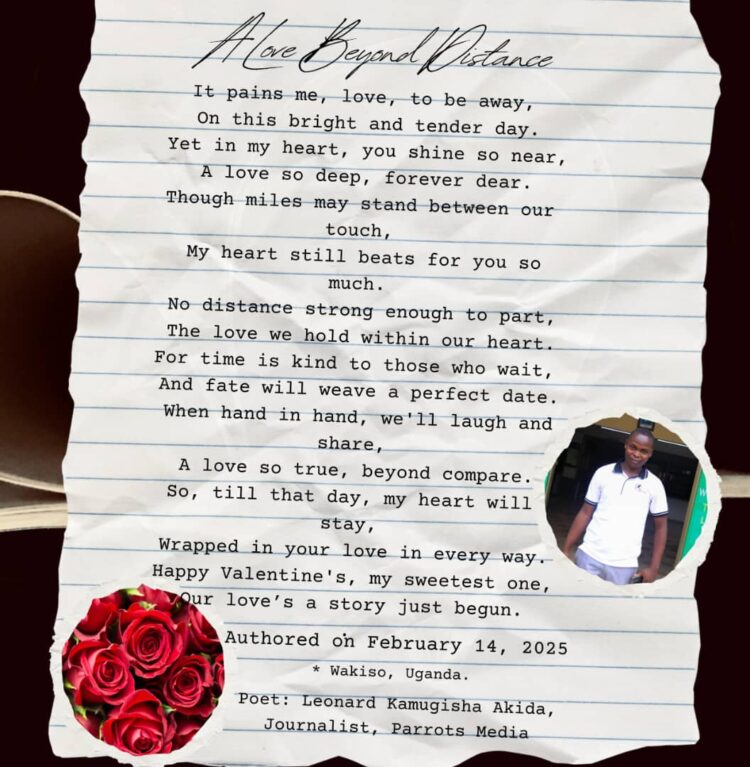 A Love Beyond Distance
It pains me, love, to be away,
On this bright and tender day.
Yet in my heart, you shine so near,
A love so deep, forever dear.
Though miles may stand between our
touch,
My heart still beats for you so
much.
No distance strong enough to part,
The love we hold within our heart.
For time is kind to those who wait,
And fate will weave a perfect date.
When hand in hand, we'll laugh and
share,
A love so true, beyond compare.
So, till that day, my heart will
stay,
Wrapped in your love in every way.
Happy Valentine's, my sweetest one,
Our love’s a story just begun.
Authored on February 14, 2025
* Wakiso, Uganda.
Poet: Leonard Kamugisha Akida,
Journalist, Parrots Media